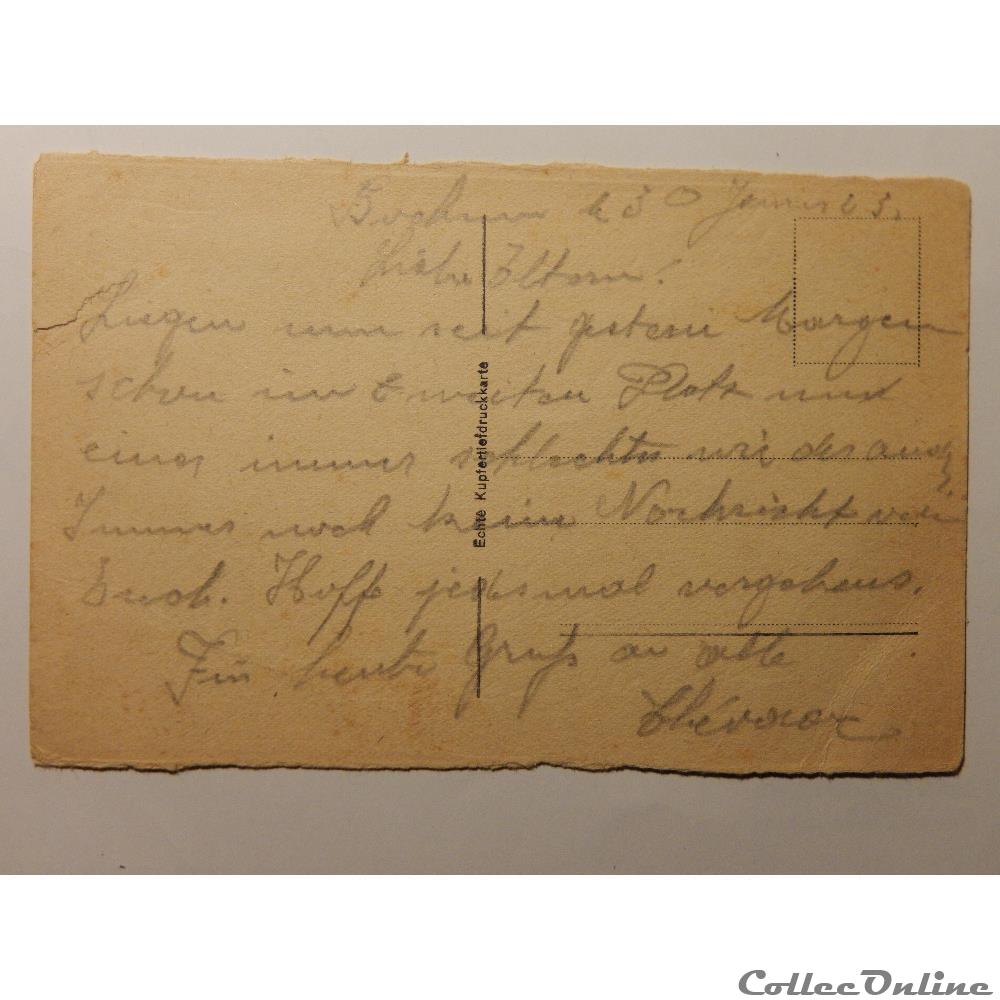 Bochum d 30 Januar 23.
Liebe Eltern!
Liegen nun seit gestern Morgen
schon im zweiten Platz und
einer immer schlechter wie der and.
Immer noch keine Nachricht von
Euch. Hoffe jedesmal vergebens.
Für heute Gruß an alle
Echte Kupfertiefdruckkarte
CollecOnline